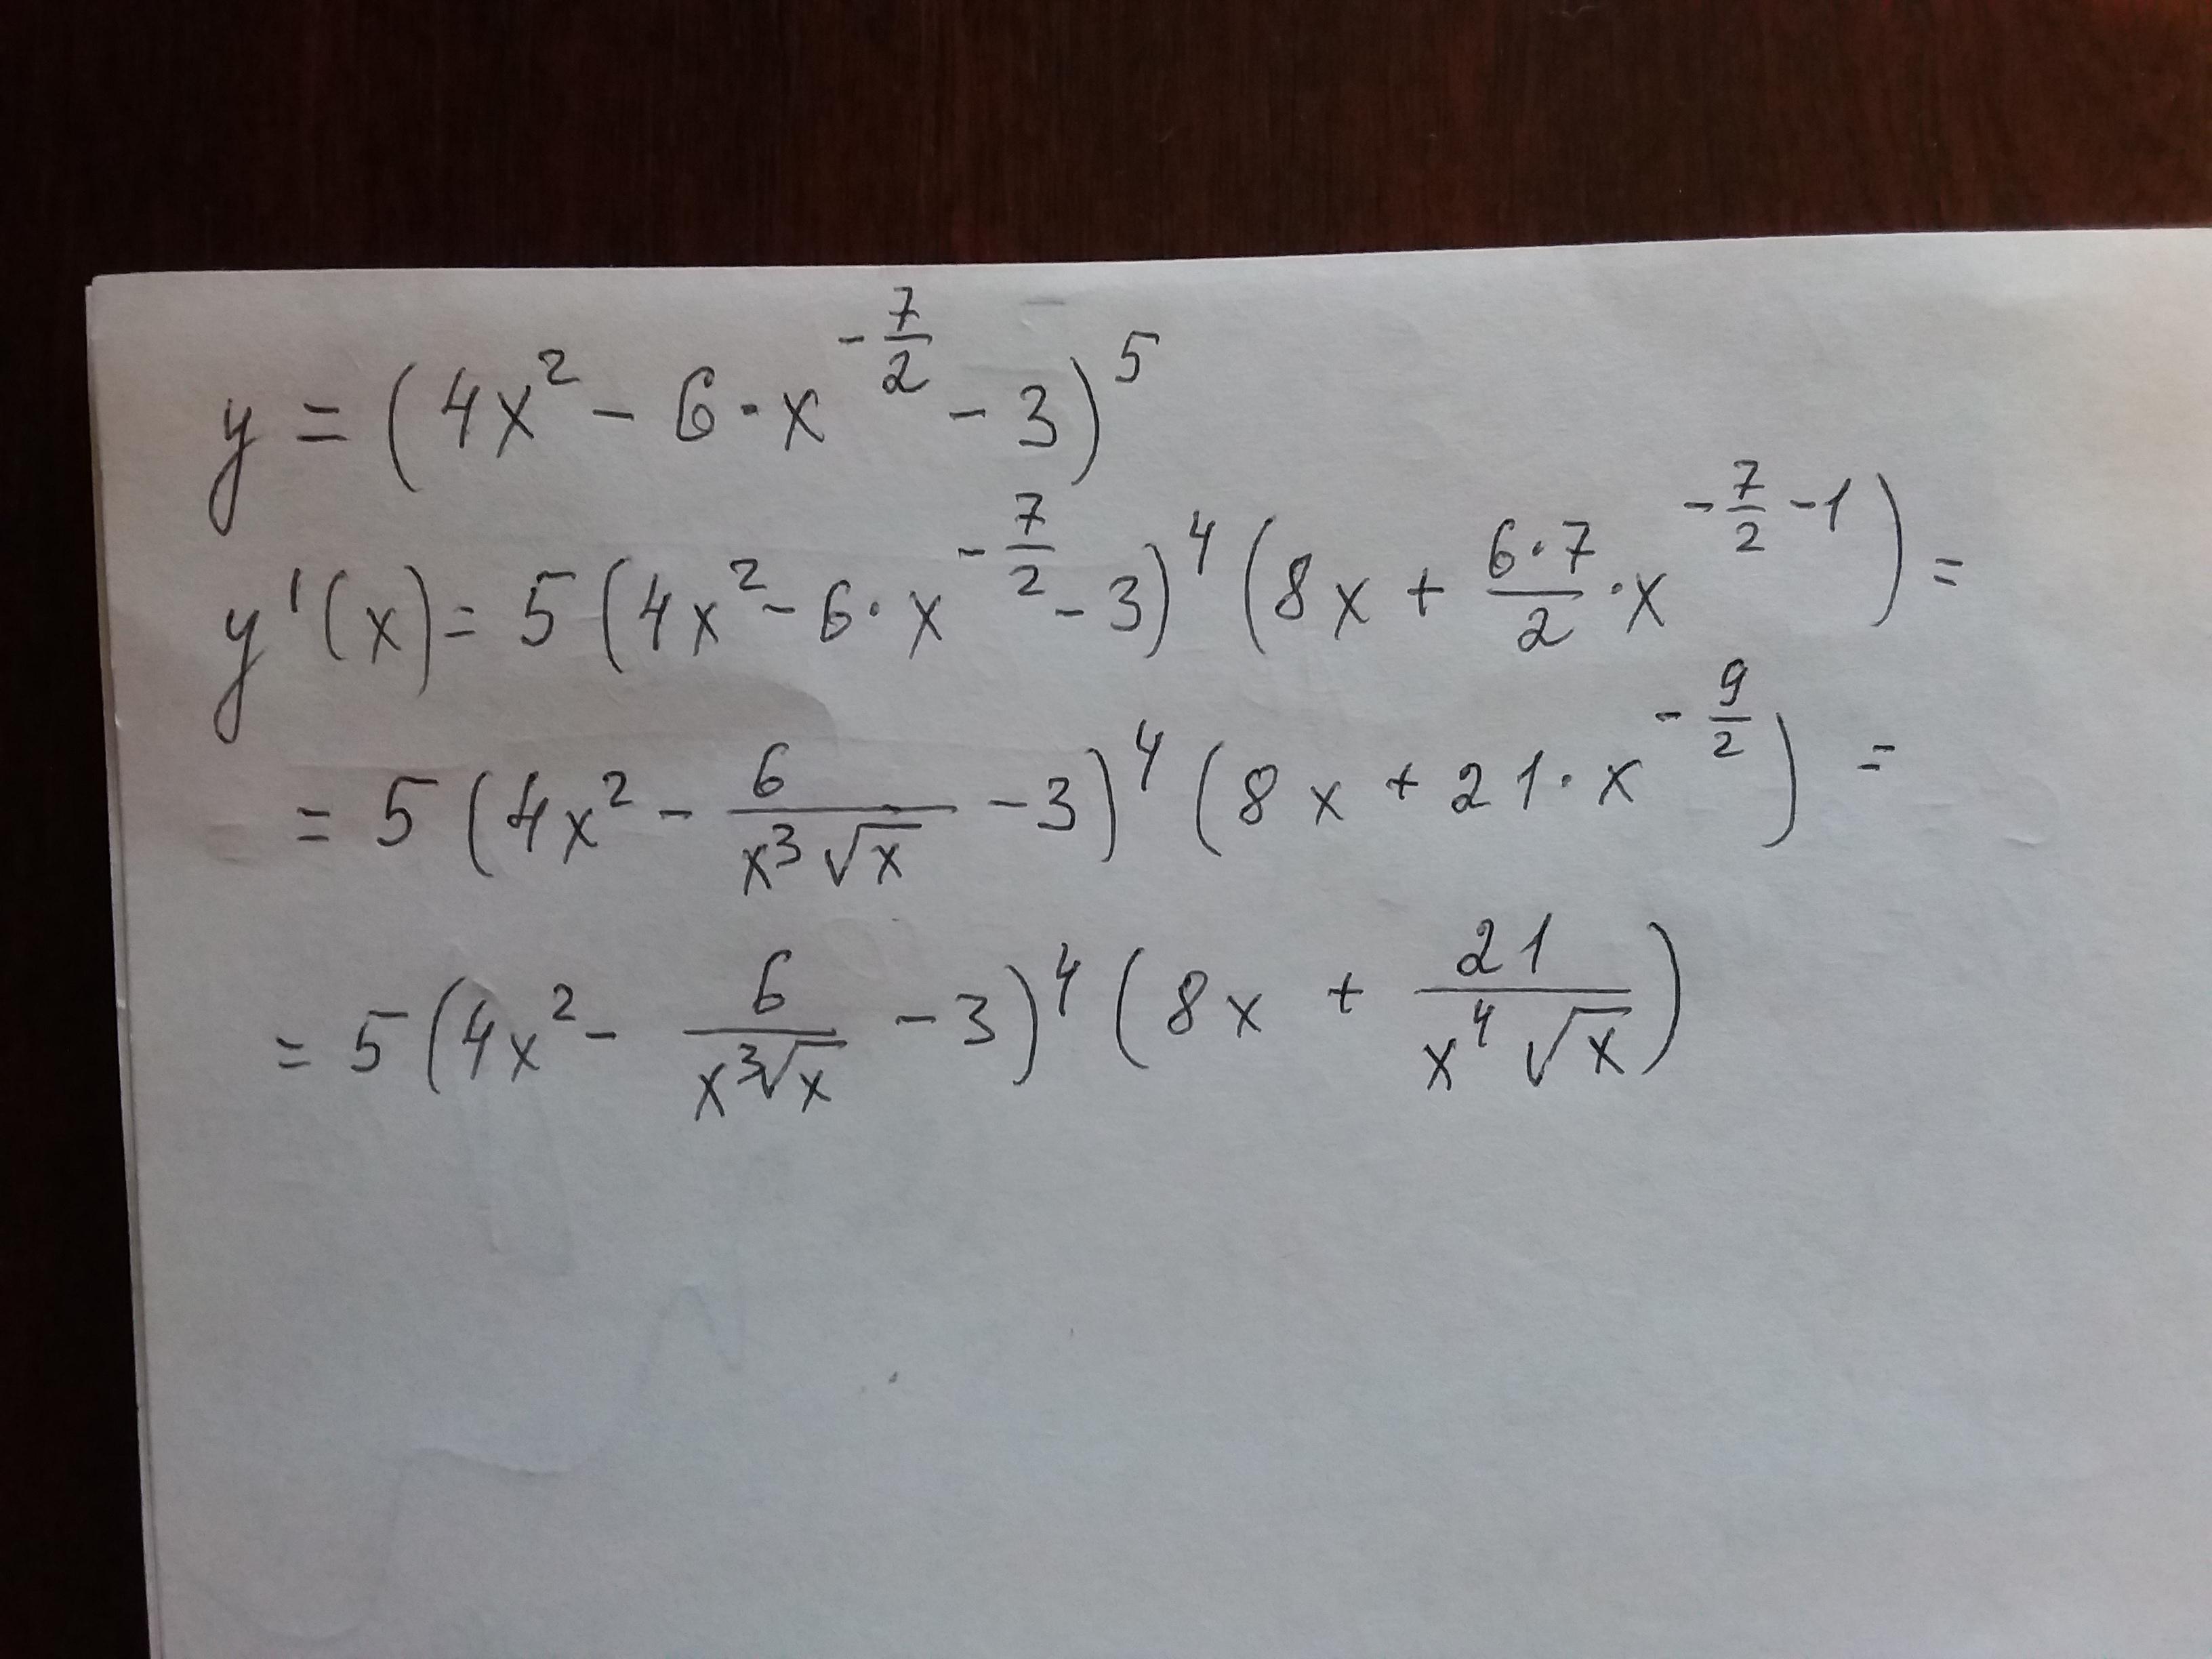 y = (4x² - 6·x^(-7/2) - 3)⁵
y'(x) = 5(4x² - 6·x^(-7/2) - 3)⁴(8x + (6·7)/2·x^(-7/2 - 1)) =
= 5(4x² - 6/(x³√x) - 3)⁴(8x + 21·x^(-9/2)) =
= 5(4x² - 6/(x³√x) - 3)⁴(8x + 21/(x⁴√x))